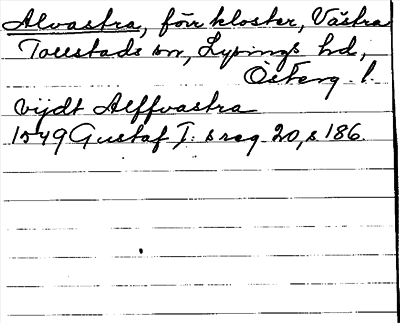 Alvastra, förr kloster, Västra
Tollstads sn, Lysings hd,
Österg. l.
vijdt Alffvastra
1549 Gustaf I:s reg. 20, s 186.